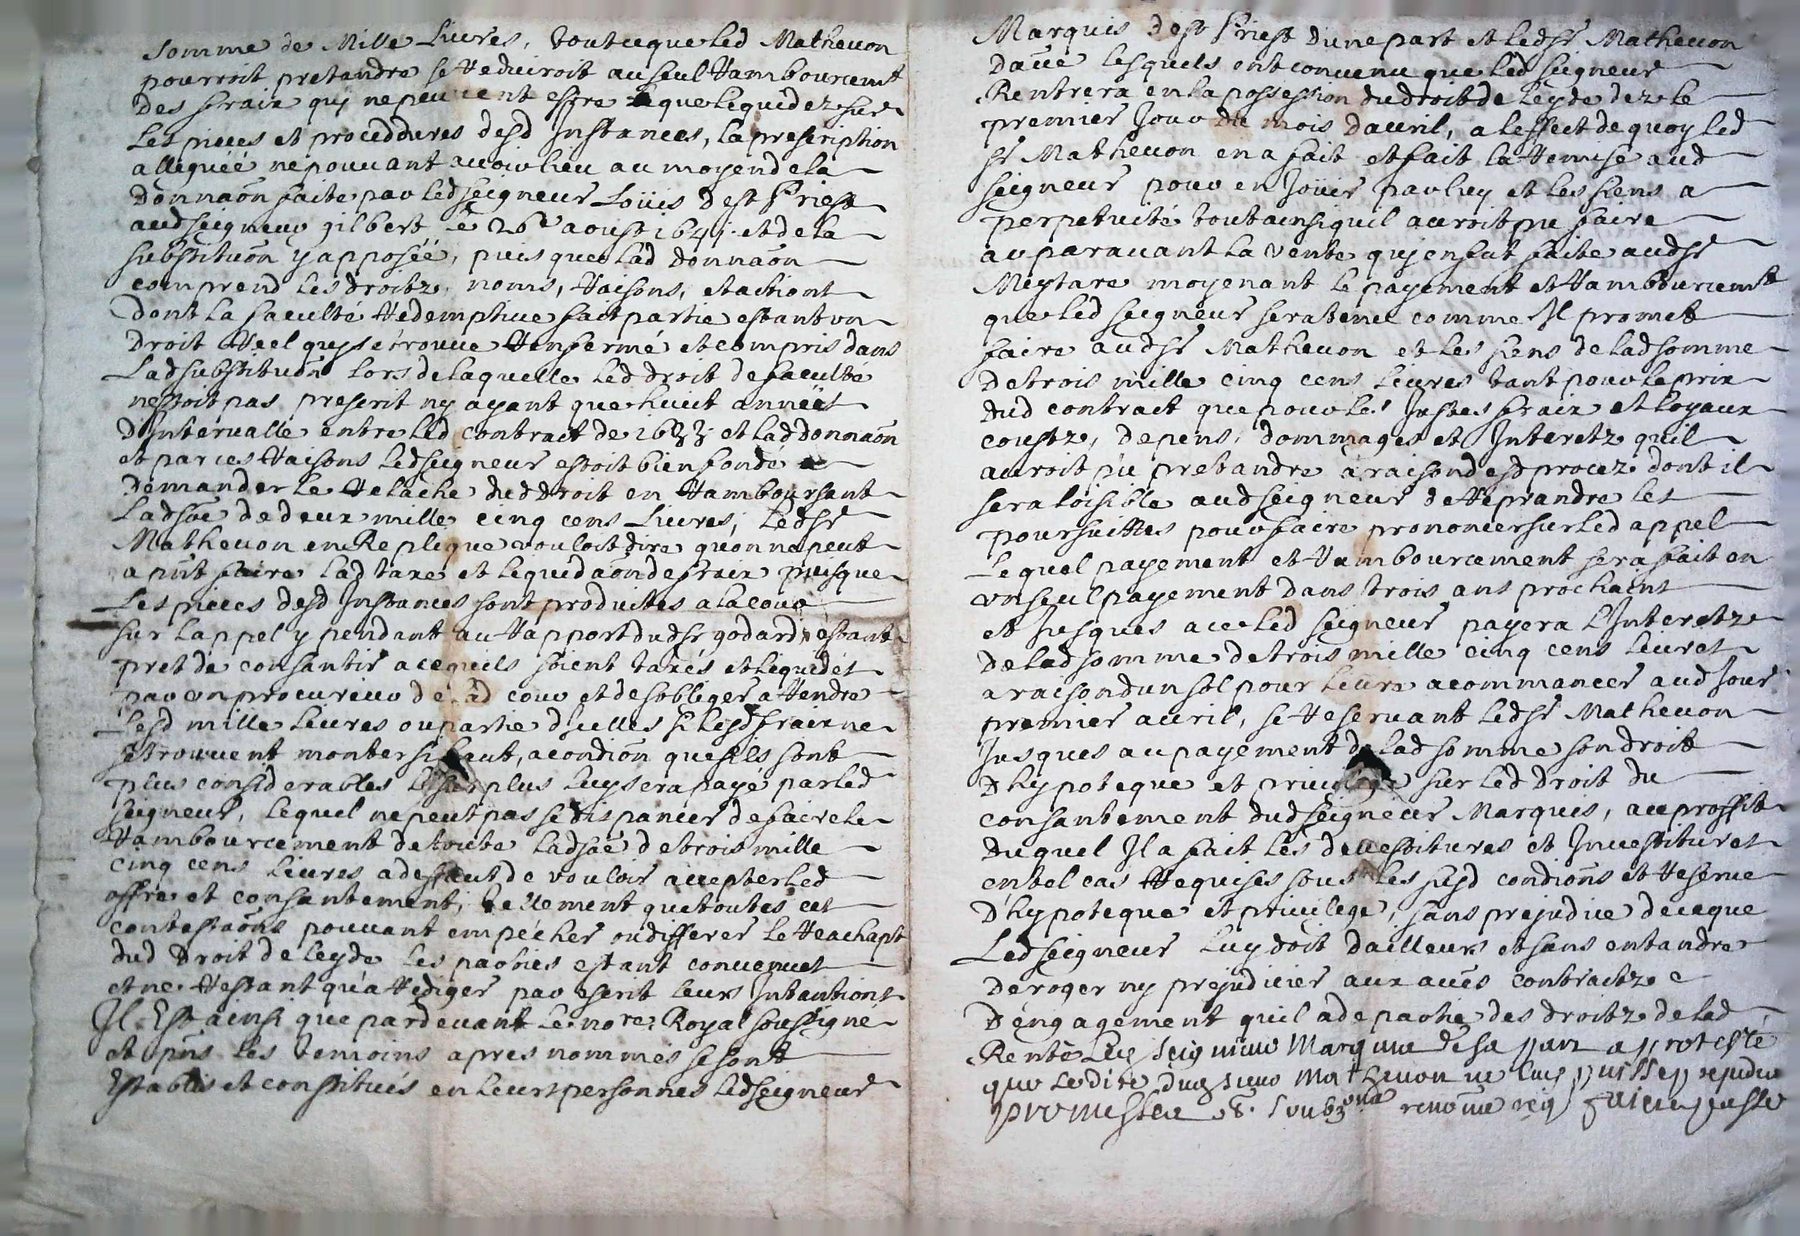 somme de Mille Livres, tout ce que led Matheuon
pourroit pretandre se reduiroit au seul rambourcemt
des fraix qui ne peuuent estre que liquidez sur
les pieces et proceddures desd Instances, la prescription
alleguéé ne pouuant auoir lieu au moyen de la
donnaõn faite par led seigneur Loüis de st Priest
aud seigneur gilbert le 26e aoust 1641. et de la
substituõn y apposéé, puis que lad donnaõn
comprend les droitz, noms, raisons, et actions
dont la faculté redemptiue fait partie estant un
droit reel quy se trouue renfermé et compris dans
lad substituõn lors de laquelle led droit de faculté
nestoit pas prescrit ny ayant que huict annéés
d'Interualle entre led contract de 1633 et lad donnaõn
et par ces raisons led seigneur estoit bien fondé a
demander le relache dud droit en ramboursant
lad soẽ de deux mille cinq cens Liures, led sr
Matheuon en Replique vouloit dire qu'on ne peut
a pñt faire lad taxe et liquidaõn de fraix puisque
les pieces desd Instances sont produites a la cour
sur l'appel y pendant au rapport dud sr godard estant
pret de consantir a ce quils soient taxés et liquidés
par un procureur de lad cour et de sobliger a rendre
lesd mille liures ou partie d'icelles sy lesd fraix ne
se trouuent monter si haut, a condiõn que sils sont
plus considerables le surplus luy sera payé par led
seigneur, lequel ne peut pas se dispancer de faire le
rambourcement de toute lad soẽ de trois mille
cinq cens Liures a deffaut de vouloir accepter led
offre et consantement, tellement que toutes ces
contestaõns pouuant empecher ou differer le reachapt
dud Droit de leyde les parties estant conuenues
et ne restant qu'a rediger par escrit leurs Intantions
Il Est ainsi que pardeuant le nore Royal soussigné
et pñs les temoins apres nommés se sont
Establis et constitués en leurs personnes led seigneur
Marquis de st Priest d'une part et led sr Matheuon
d'aũe lesquels ont conuenu que led seigneur
Rentrera en la possession du droit de Leyde dez le
premier Jour du mois d'auril, a leffect de quoy led
sr Matheuon en a fait et fait la remise aud
seigneur pour en Joüir par luy et les siens a
perpetuité tout ainsi quil auroit pu faire
auparauant la vente quy en fut faite aud sr
Meytare moyenant le payement et rambourcemt
que led seigneur sera tenu comme Il promet
faire aud sr Matheuon et les siens de lad somme
de trois mille cinq cens liures tant pour le prix
dud contract que pour les Justes fraix et loyaux
coustz, depens, dommages et Interetz quil
auroit pû pretandre a raison desd procez dont il
sera loisible aud seigneur de reprandre les
poursuittes pour faire prononcer sur led appel
lequel payement et rambourcement sera fait en
un seul payement dans trois ans prochains
et Jusques a ce led seigneur payera l'Interetz
de lad somme de trois mille cinq cens liures
a raison d'un sol pour liure a commancer aud Jour
premier auril, se reseruant led sr Matheuon
Jusques au payement de lad somme son droit
d'hypoteque et priuilege sur led Droit du
consantement dud seigneur Marquis, au proffit
duquel Il a fait les deuestitures et Inuestitures
en tel cas requises sous les susd condiõns et reserue
d'hypoteque et priuilege, sans prejudice de ce que
led seigneur luy doit d'ailleurs et sans entandre
deroger ny prejudicier aux aũes contractz
d'engagement quil a de partie des droitz de lad
Rente led seigneur Marquis de sa part a protesté
que le dire dud sieur Matheuon ne luy puisse prejudicier